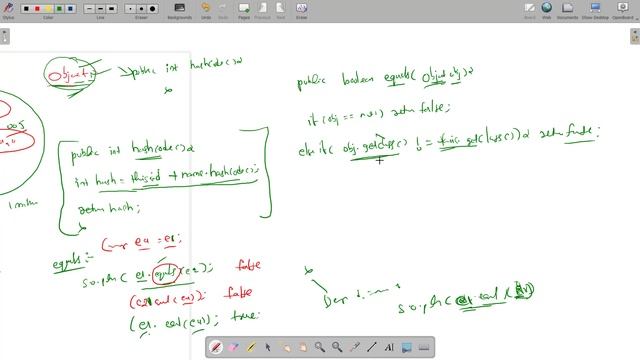 Stylus
Color
Line
Eraser
Backgrounds
Undo
Redo
Previous
Page
Next
Board
Web
Documents
Show Desktop
Open-Sankoré
Object
public int hashCode() {
}
005
1 million
public int hashCode() {
int hash = this.id + name.hashCode();
return hash;
}
e4 = e1;
equals :-
S.o.pln ( e1.equals(e2)); false
false
true
public boolean equals ( Object obj) {
if (obj == null) return false;
else if ( obj.getClass() != this.getClass()) { return false;
}
S.o.pln (